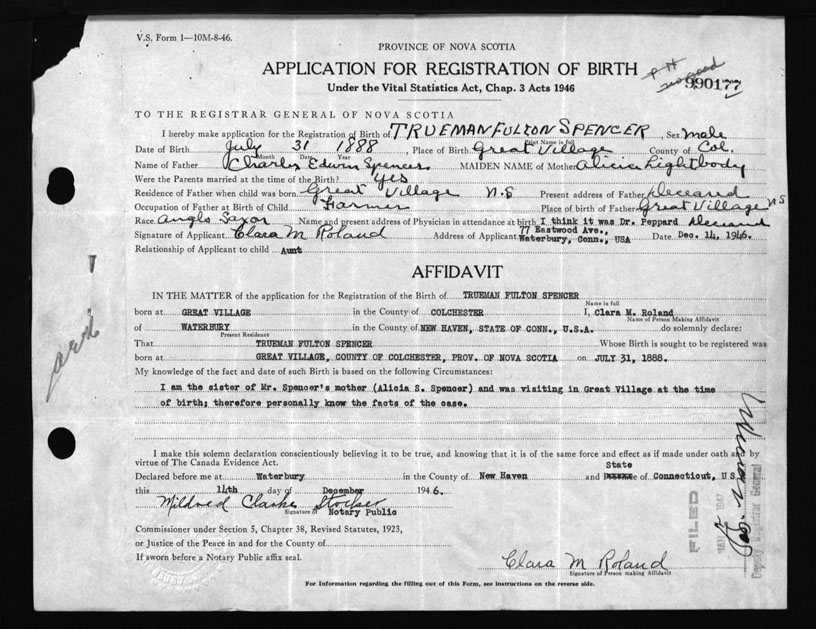 V.S. Form 1—10M-8-46.
PROVINCE OF NOVA SCOTIA
APPLICATION FOR REGISTRATION OF BIRTH
Under the Vital Statistics Act, Chap. 3 Acts 1946
990177
TO THE REGISTRAR GENERAL OF NOVA SCOTIA
I hereby make application for the Registration of Birth of TRUEMAN FULTON SPENCER, Sex Male
Print Name in full
Date of Birth July 31 1888, Place of Birth Great Village County of Col.
Month Date Year
Name of Father Charles Edwin Spencer MAIDEN NAME of Mother Alicia Lightbody
Were the Parents married at the time of the Birth? Yes
Residence of Father when child was born Great Village N.S Present address of Father Deceased
Occupation of Father at Birth of Child Farmer Place of birth of Father Great Village NS
Race Anglo Saxon Name and present address of Physician in attendance at birth I think it was Dr. Peppard Deceased
Signature of Applicant Clara M Roland Address of Applicant 77 Eastwood Ave., Waterbury, Conn., USA Date Dec. 14, 1946.
Relationship of Applicant to child Aunt
AFFIDAVIT
IN THE MATTER of the application for the Registration of the Birth of TRUEMAN FULTON SPENCER
Name in full
born at GREAT VILLAGE in the County of COLCHESTER I, Clara M. Roland
Name of Person Making Affidavit
of WATERBURY in the County of NEW HAVEN, STATE OF CONN., U.S.A. do solemnly declare:
Present Residence
That TRUEMAN FULTON SPENCER Whose Birth is sought to be registered was
born at GREAT VILLAGE, COUNTY OF COLCHESTER, PROV. OF NOVA SCOTIA on JULY 31, 1888.
My knowledge of the fact and date of such Birth is based on the following Circumstances:
I am the sister of Mr. Spencer's mother (Alicia S. Spencer) and was visiting in Great Village at the time
of birth; therefore personally know the facts of the case.
I make this solemn declaration conscientiously believing it to be true, and knowing that it is of the same force and effect as if made under oath and by
virtue of The Canada Evidence Act.
State
Declared before me at Waterbury in the County of New Haven and of Connecticut, U S
this 14th day of December 1946.
Mildred Clarke
Signature of Notary Public
Commissioner under Section 5, Chapter 38, Revised Statutes, 1923,
or Justice of the Peace in and for the County of
If sworn before a Notary Public affix seal.
Clara M Roland
Signature of Person making Affidavit
For Information regarding the filling out of this Form, see instructions on the reverse side.
FILED
1947
Deputy Registrar General